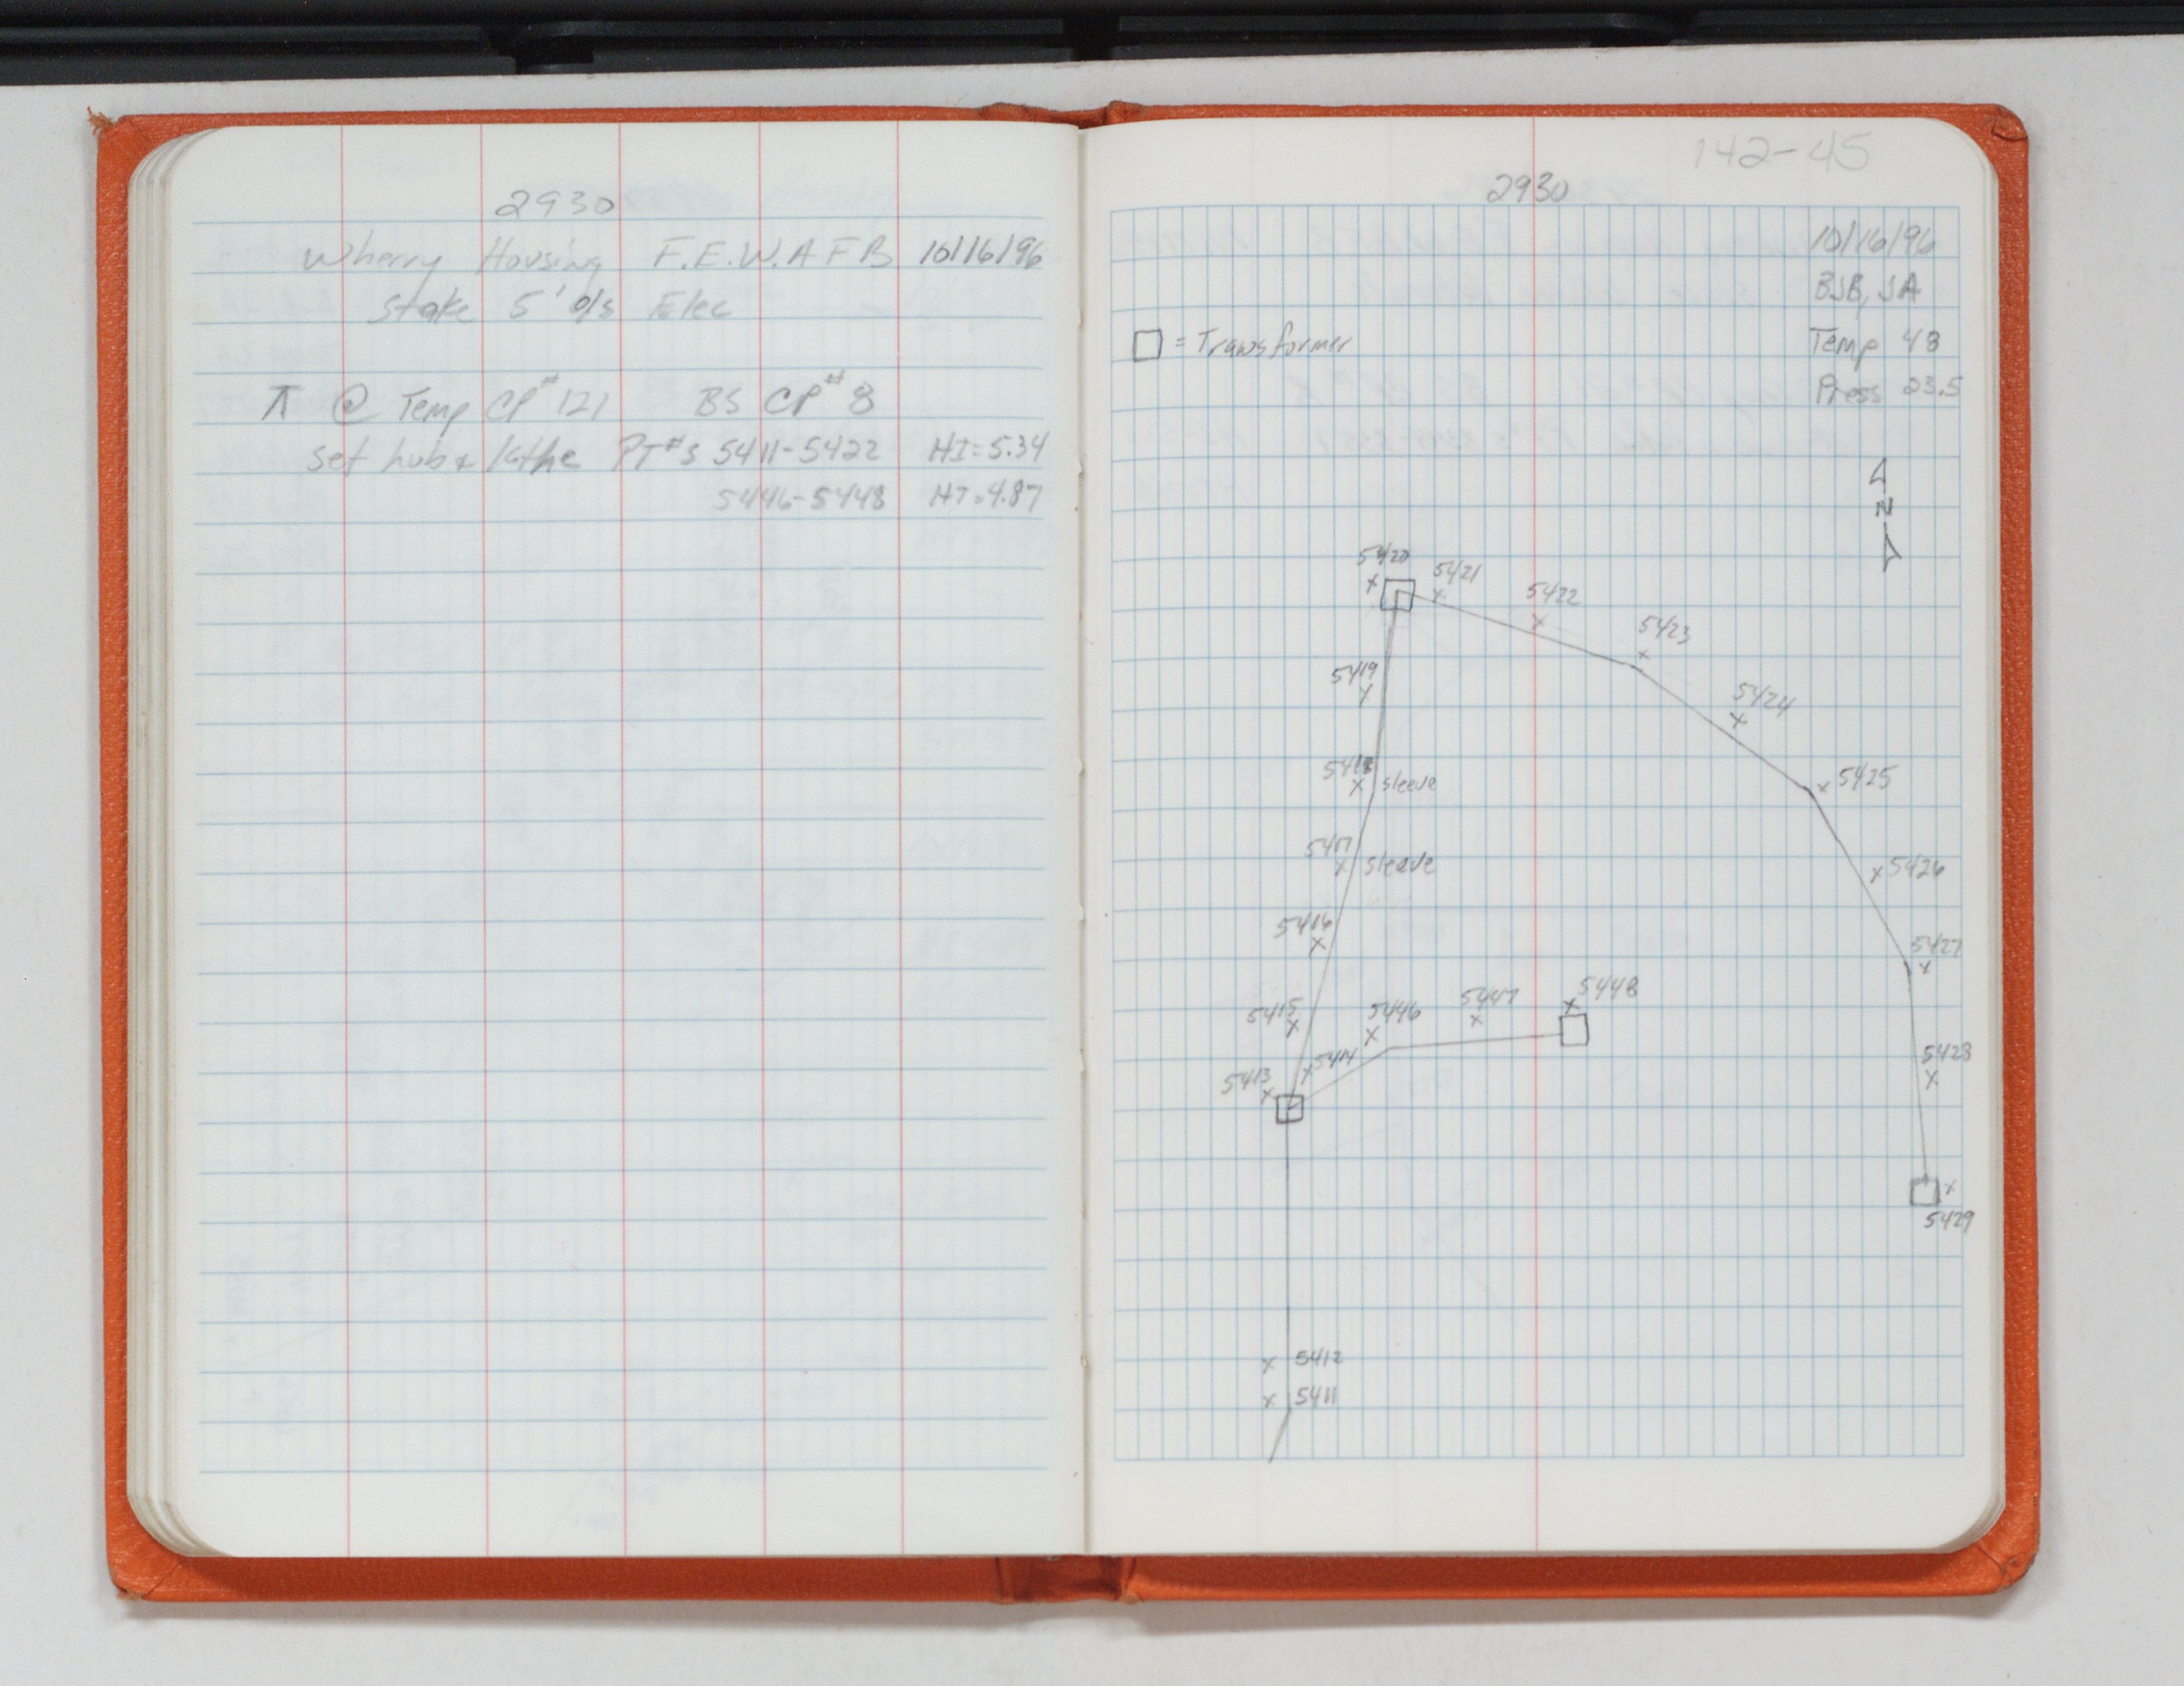 2930
Wherry Housing F.E.W.A.F.B 10/16/96
Stake 5' o/s Elec
⊼ @ Temp CP#121 BS CP#8
Set hub & lathe PT#'s 5411-5422 HI=5.34
5446-5448 HT=4.87
142-45
2930
10/16/96
BJB, JA
□ = Transformer
Temp 48
Press 23.5
N
5420
5421
5422
5423
5419
5424
5418 sleeve
5425
5417 sleave
5426
5416
5427
5448
5447
5415
5446
5428
5414
5413
5429
5412
5411